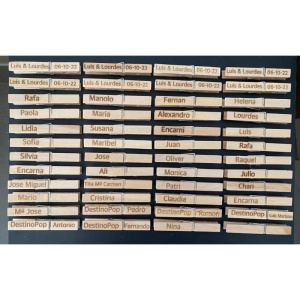 Luis & Lourdes 06-10-22 Luis & Lourdes 06-10-22 Luis & Lourdes 06-10-22 Luis & Lourdes 06-10-22
Luis & Lourdes 06-10-22 Luis & Lourdes 06-10-22 Luis & Lourdes 06-10-22 Luis & Lourdes 06-10-22
Rafa Manolo Fernan Helena
Paola Maria Alexandro Lourdes
Lidia Susana Encarni Luis
Sofía Maribel Juan Rafa
Silvia José Oliver Raquel
Encarna Ali Monica Julio
Jose Miguel Tita Mª Carmen Patri Chari
Mario Cristina Claudia Encarna
Mª Jose DestinoPop Pedro DestinoPop Román DestinoPop
DestinoPop Antonio DestinoPop Fernando Nina